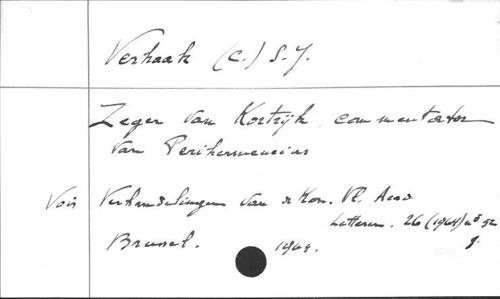 Verhaak (C.) S.J.
Zeger van Kortrijk, commentator
van Perihermeneias
Voir Verhandelingen van de Kon. Vl. Acad.
Letteren. 26 (1964) n° 52
Brussel. 1964.